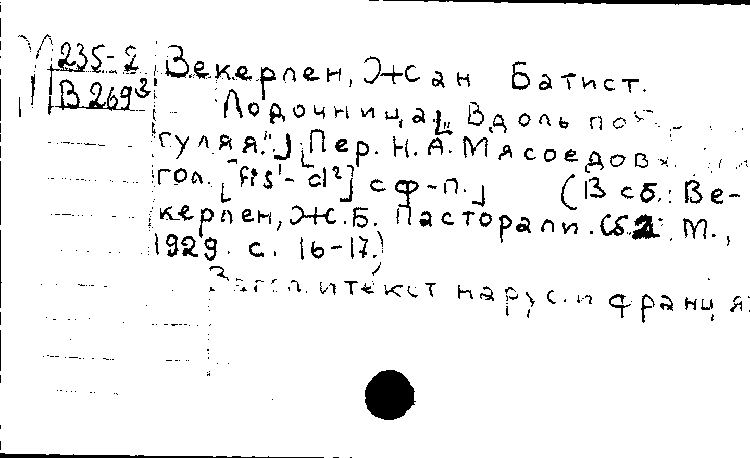 235-2 Векерлен, Жан Батист.
В 269³ Лодочница [„Вдоль по
гуляя."] [Пер. Н. А. Мясоедов
гол. [fis¹-d²] с ф-п.] (В сб.: Ве-
керлен, Ж. Б. Пасторали. М.,
1929. с. 16-17.)
Загол. и текст на рус. и франц яз